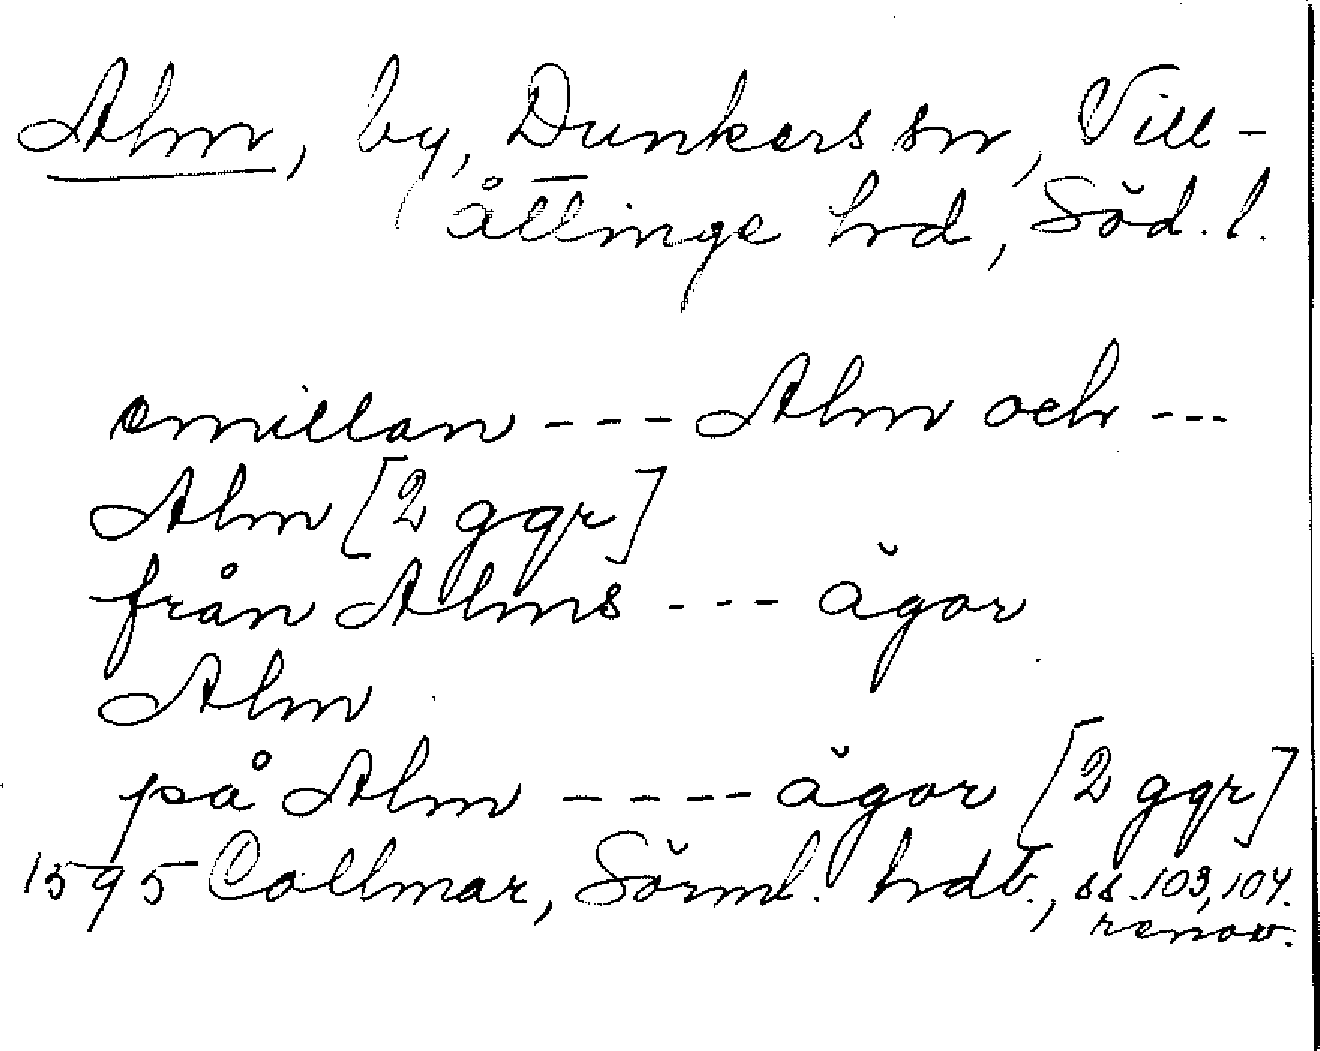 Alm, by, Dunkers sn, Vill-
åttinge hrd, Söd. l.
emillan --- Alm och ---
Alm [2 ggr]
från Alms --- ägor
Alm
på Alm ---- ägor [2 ggr]
1595 Collmar, Sörml. hrdb., ss. 103, 104.
renov.